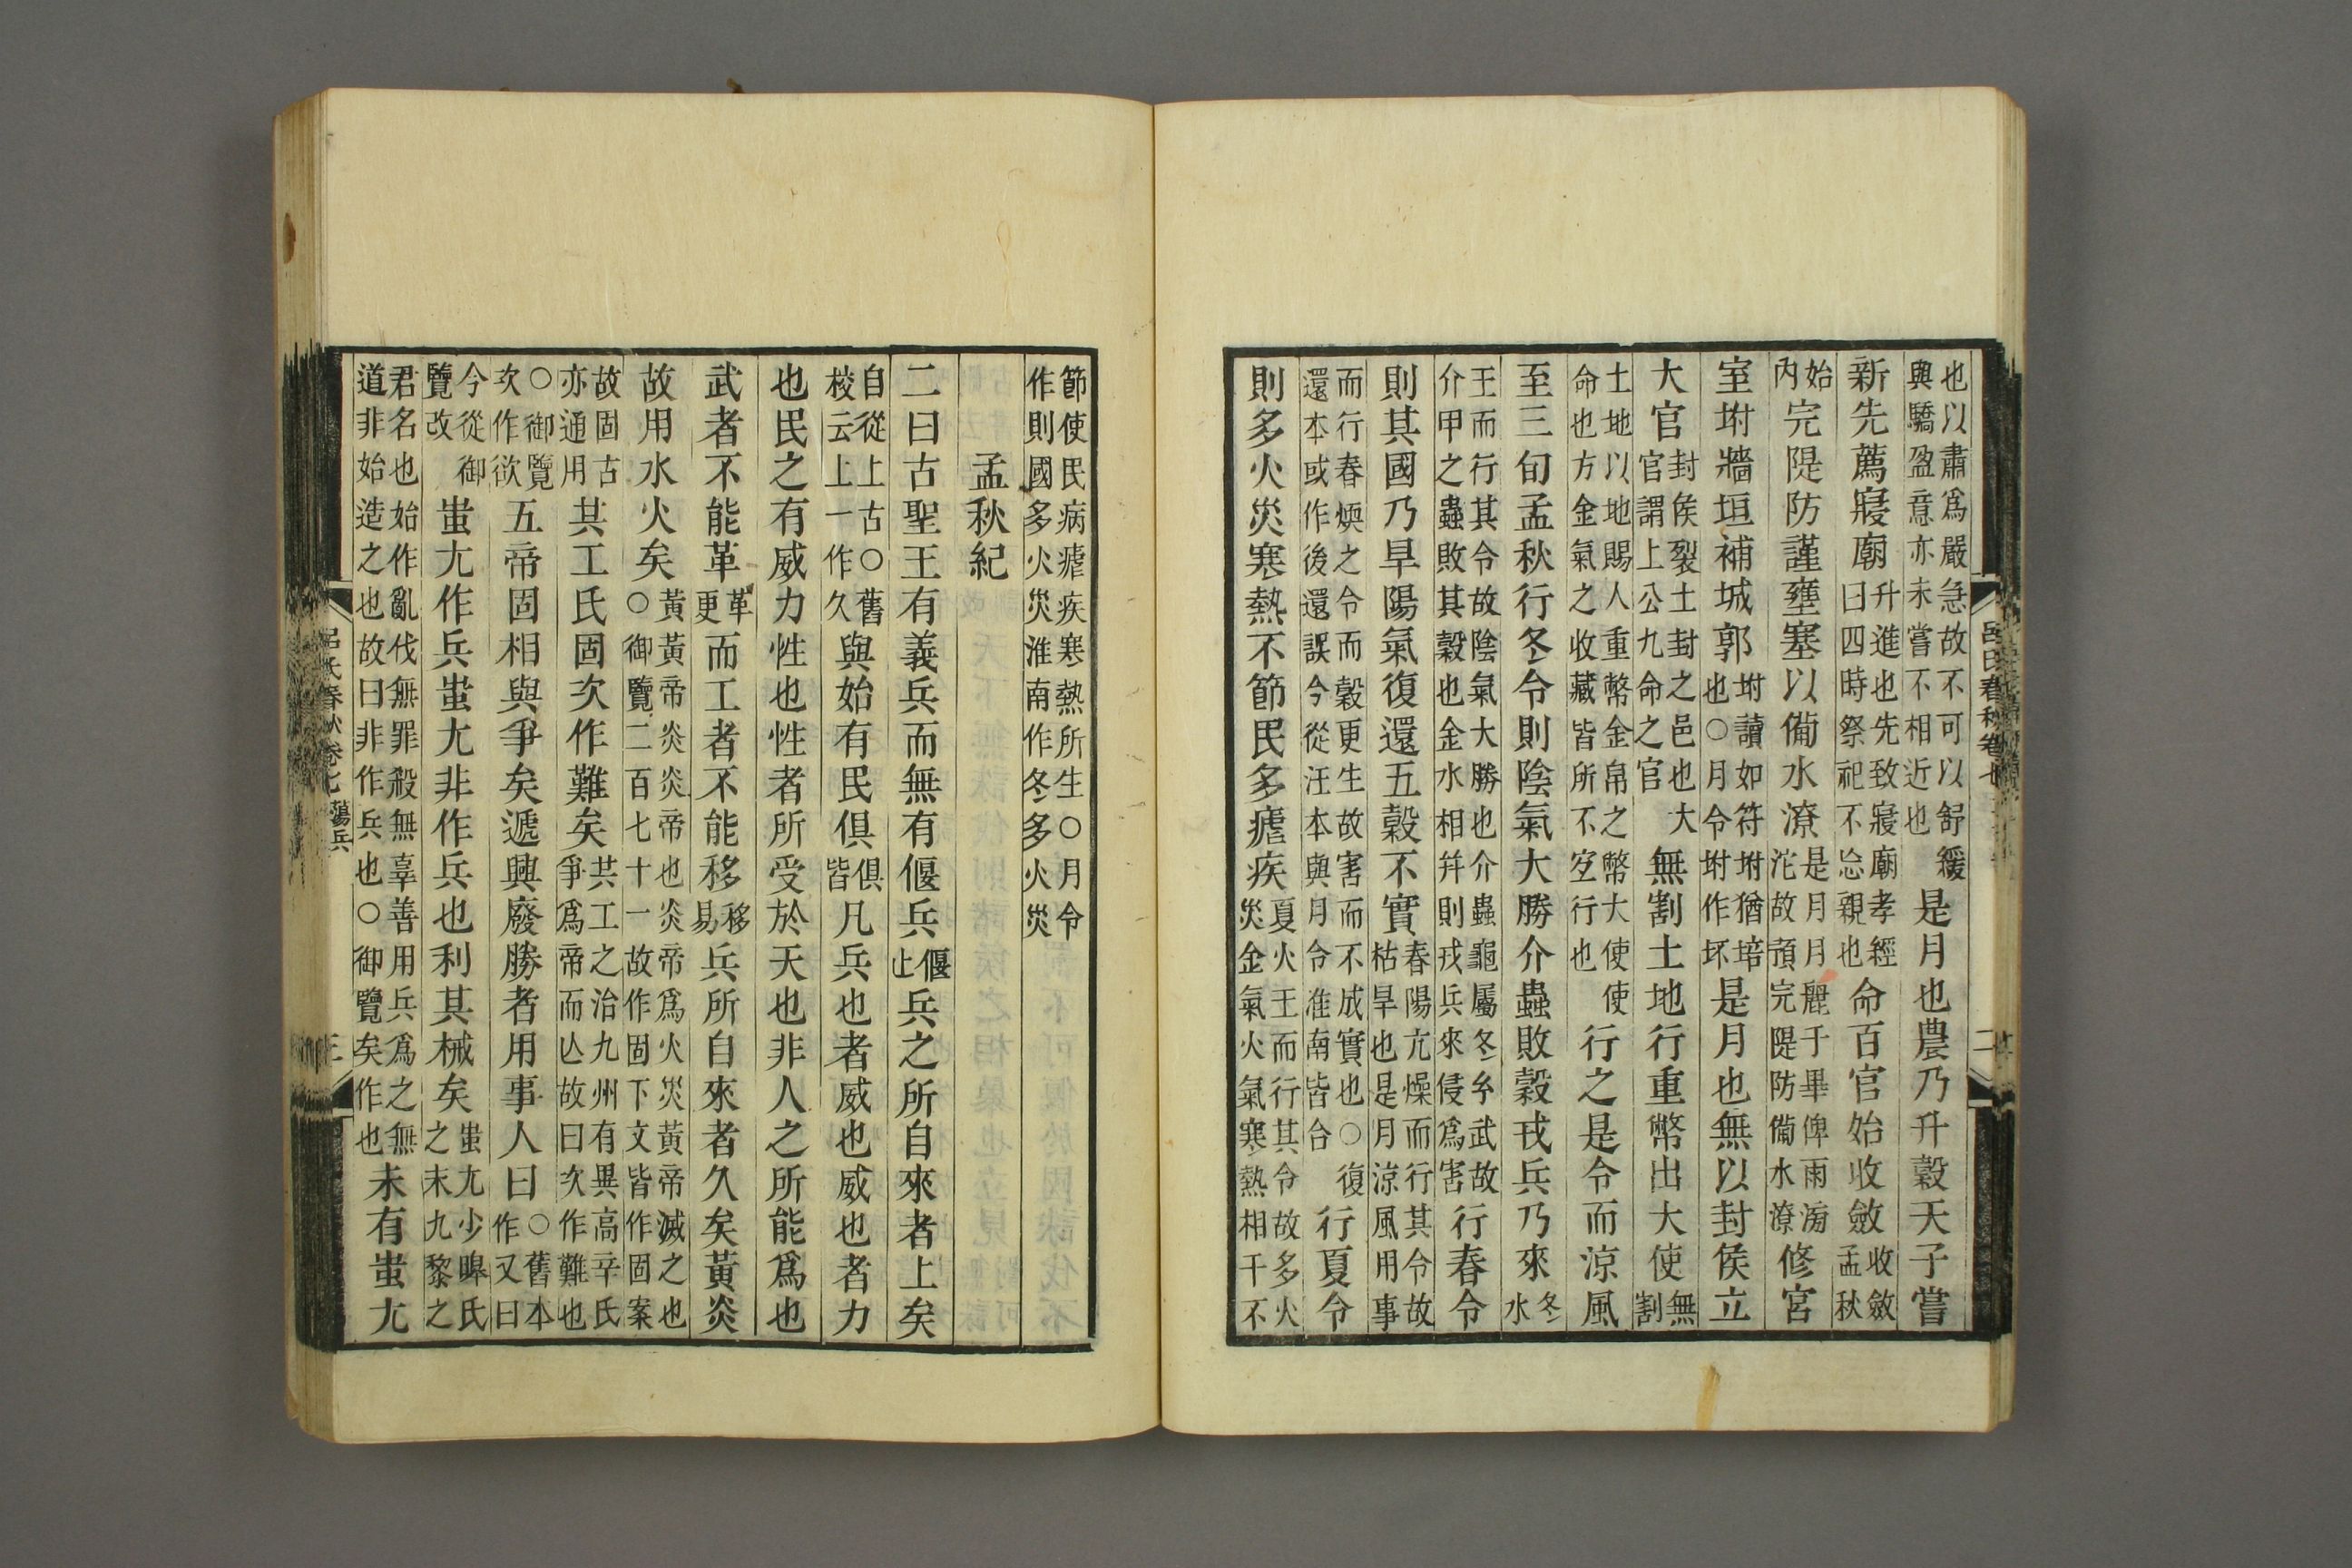 也以肅爲嚴急故不可以舒緩與驕盈意亦未嘗不相近也是月也農乃升穀天子嘗
新先薦寢廟升進也先致寢廟孝經曰四時祭祀不忘親也命百官始收斂收斂孟秋
始內完隄防謹壅塞以備水潦是月月麗于畢俾雨滂沱故預完隄防備水潦修宮
室坿牆垣補城郭坿讀如符坿猶培也○月令坿作坏是月也無以封侯立
大官封侯裂土封之邑也大官謂上公九命之官無割土地行重幣出大使無割
土地以地賜人重幣金帛之幣大使使命也方金氣之收藏皆所不宜行也行之是令而涼風
至三旬孟秋行冬令則陰氣大勝介蟲敗穀戎兵乃來冬水
王而行其令故陰氣大勝也介蟲龜屬冬玄武故介甲之蟲敗其穀也金水相幷則戎兵來侵爲害行春令
則其國乃旱陽氣復還五穀不實春陽亢燥而行其令故枯旱也是月涼風用事
而行春煗之令而穀更生故害而不成實也○復還本或作後還誤今從汪本與月令淮南皆合行夏令
則多火災寒熱不節民多瘧疾夏火王而行其令故多火災金氣火氣寒熱相干不
呂氏春秋卷七
二
節使民病瘧疾寒熱所生○月令作則國多火災淮南作冬多火災
孟秋紀
二曰古聖王有義兵而無有偃兵偃止兵之所自來者上矣
自從上古○舊校云上一作久與始有民俱俱皆凡兵也者威也威也者力
也民之有威力性也性者所受於天也非人之所能爲也
武者不能革革更而工者不能移移易兵所自來者久矣黃炎
故用水火矣黃黃帝炎炎帝也炎帝爲火災黃帝滅之也○御覽二百七十一故作固下文皆作固案
故固古亦通用共工氏固次作難矣共工之治九州有異高辛氏爭爲帝而亾故曰次作難也
○御覽次作欲五帝固相與爭矣遞興廢勝者用事人曰○舊本作又曰
今從御覽改蚩尤作兵蚩尤非作兵也利其械矣蚩尤少皞氏之末九黎之
君名也始作亂伐無罪殺無辜善用兵爲之無道非始造之也故曰非作兵也○御覽矣作也未有蚩尤
呂氏春秋卷七 蕩兵
三